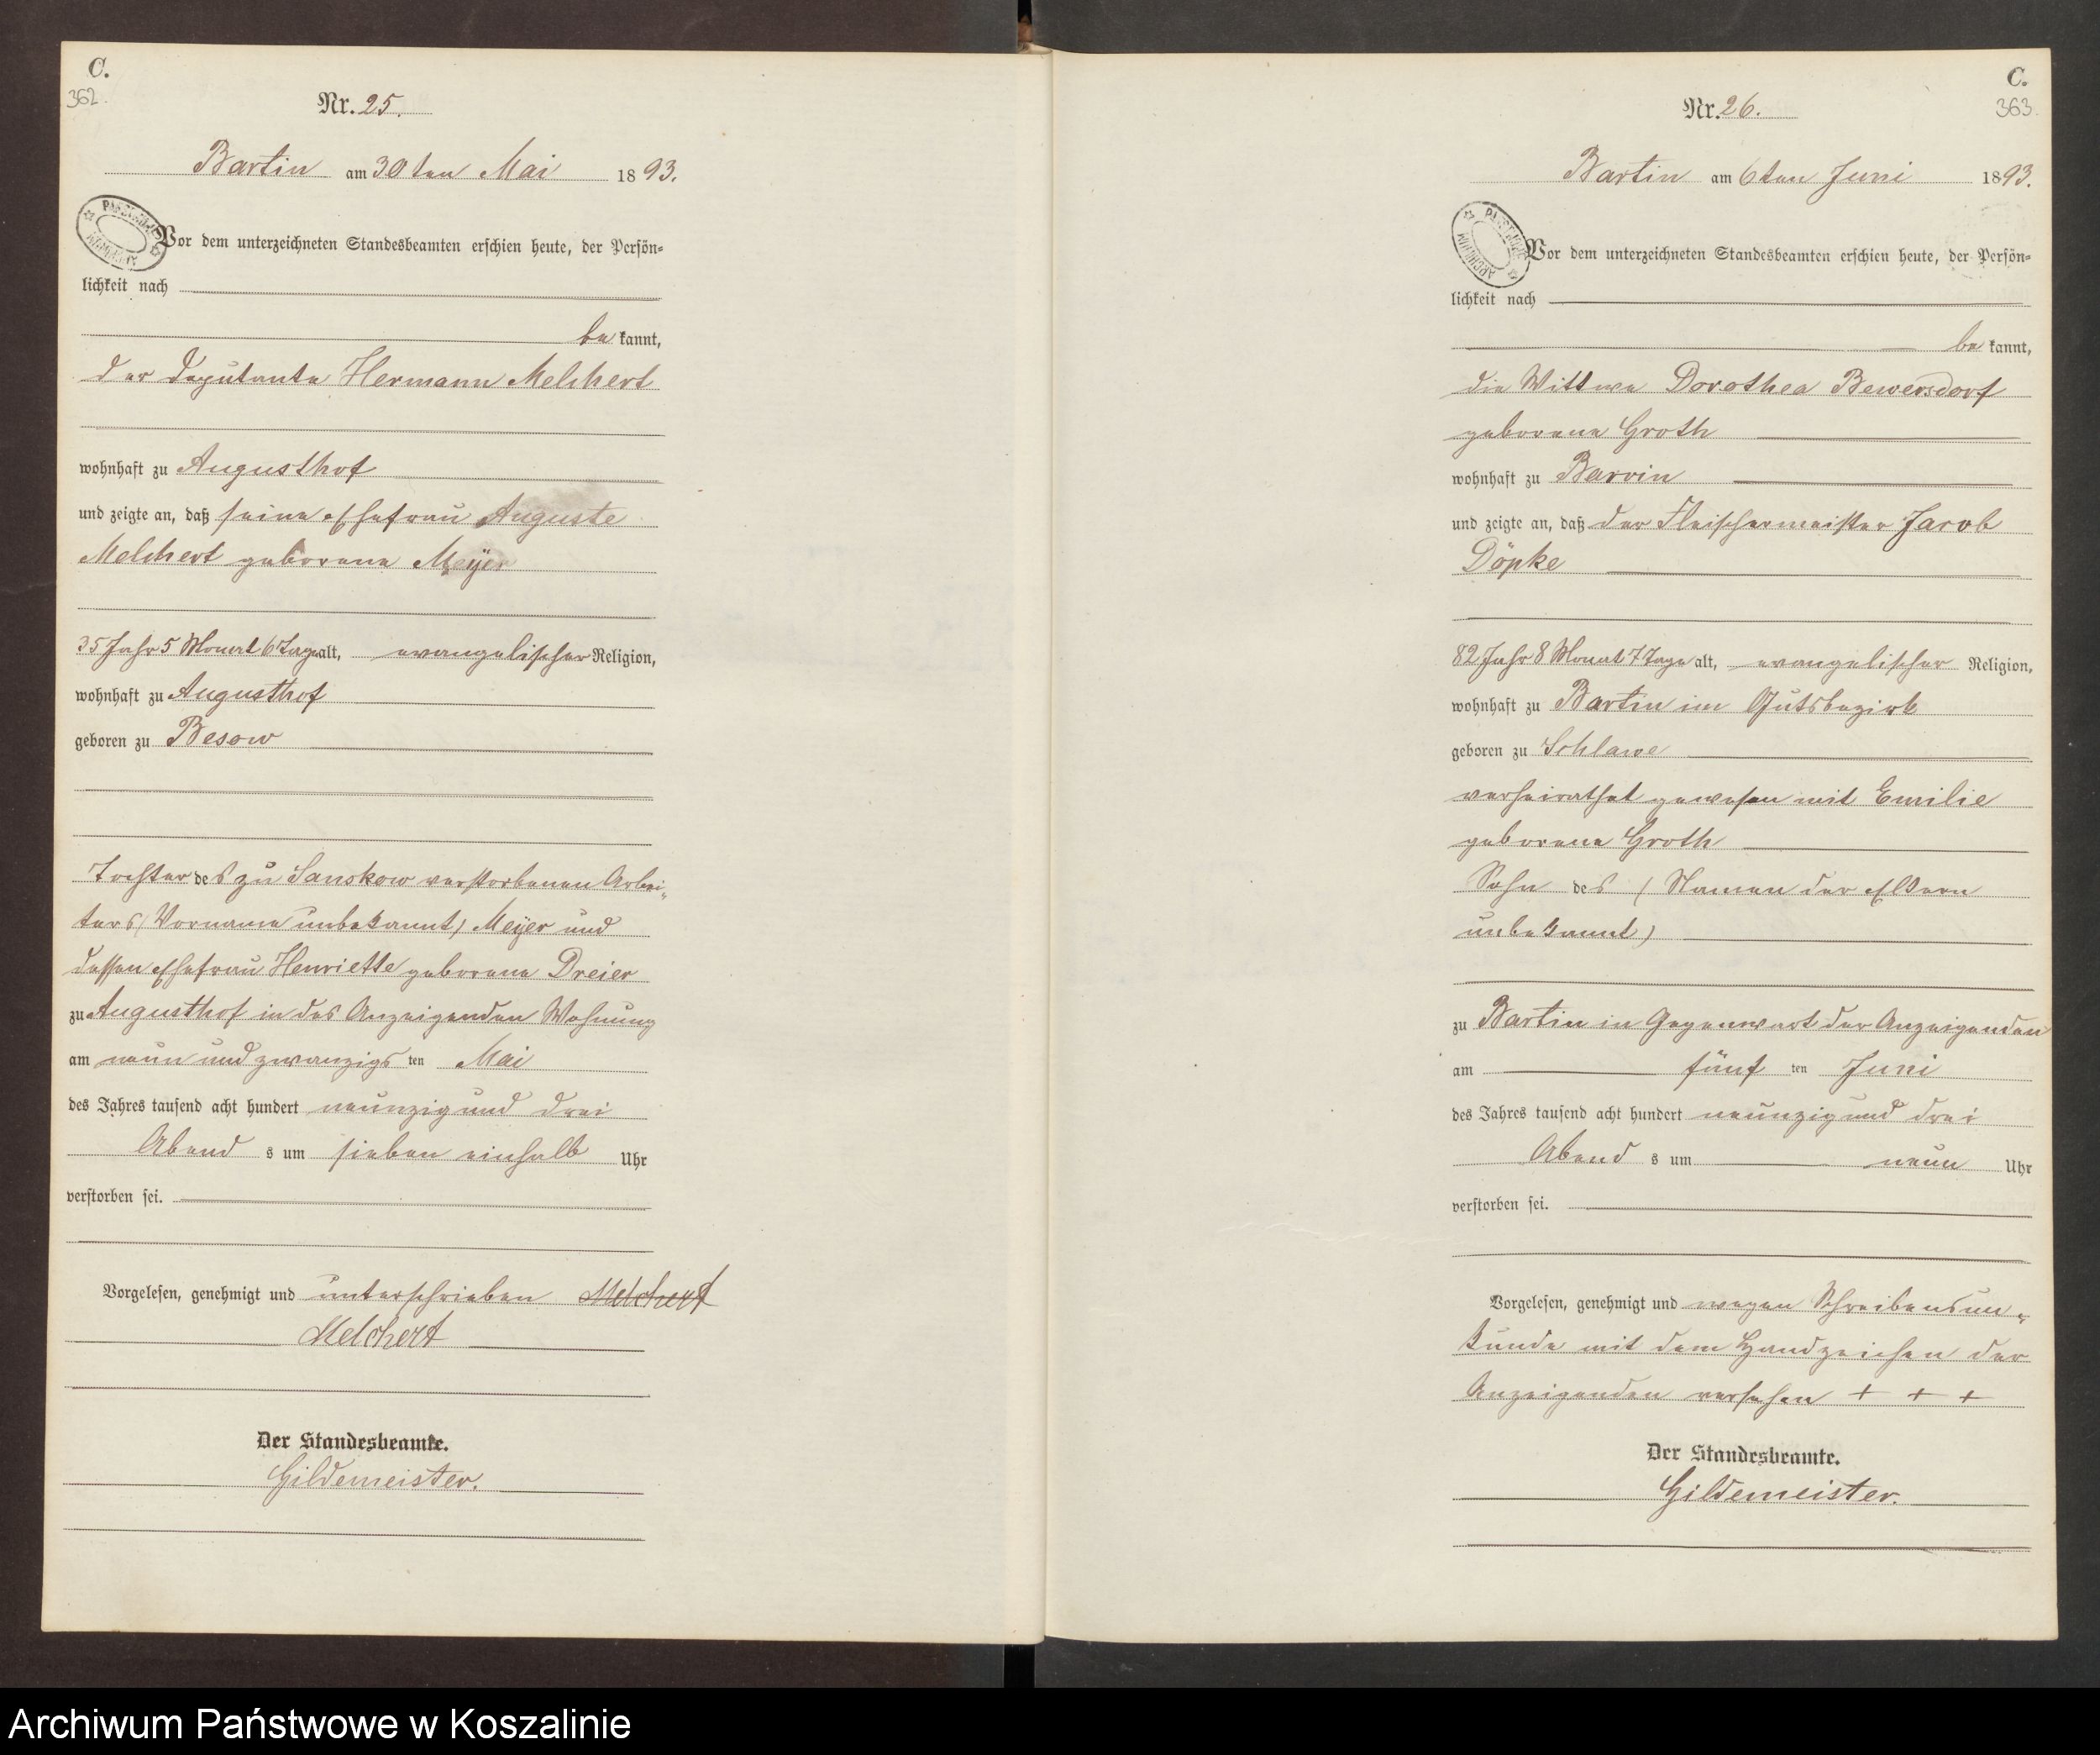 C.
362.
Nr. 25.
Bartin am 30ten Mai 1893.
Vor dem unterzeichneten Standesbeamten erschien heute, der Persön-
lichkeit nach
bekannt,
der Deputante Hermann Melchert
wohnhaft zu Augusthof
und zeigte an, daß seine Ehefrau Auguste
Melchert geborene Meÿer
35 Jahr 5 Monat 6 Tage alt, evangelischer Religion,
wohnhaft zu Augusthof
geboren zu Besow
Tochter des zu Sanskow verstorbenen Arbei-
ters (Vorname unbekannt) Meÿer und
dessen Ehefrau Henriette geborene Dreier
zu Augusthof in des Anzeigenden Wohnung
am neun und zwanzigsten Mai
des Jahres tausend acht hundert neunzig und drei
Abends um sieben einhalb Uhr
verstorben sei.
Vorgelesen, genehmigt und unterschrieben Melchert
Melchert
Der Standesbeamte.
Gildemeister.
C.
363.
Nr. 26.
Bartin am 6ten Juni 1893.
Vor dem unterzeichneten Standesbeamten erschien heute, der Persön-
lichkeit nach
bekannt,
die Wittwe Dorothea Bewersdorf
geborene Groth
wohnhaft zu Barvin
und zeigte an, daß der Fleischermeister Jacob
Döpke
82 Jahr 8 Monat 7 Tage alt, evangelischer Religion,
wohnhaft zu Bartin im Gutsbezirk
geboren zu Schlawe
verheirathet gewesen mit Emilie
geborene Groth
Sohn des (Namen der Eltern
unbekannt)
zu Bartin in Gegenwart der Anzeigenden
am fünften Juni
des Jahres tausend acht hundert neunzig und drei
Abends um neun Uhr
verstorben sei.
Vorgelesen, genehmigt und wegen Schreibensun-
kunde mit dem Handzeichen der
Anzeigenden versehen + + +
Der Standesbeamte.
Gildemeister.
Archiwum Państwowe w Koszalinie